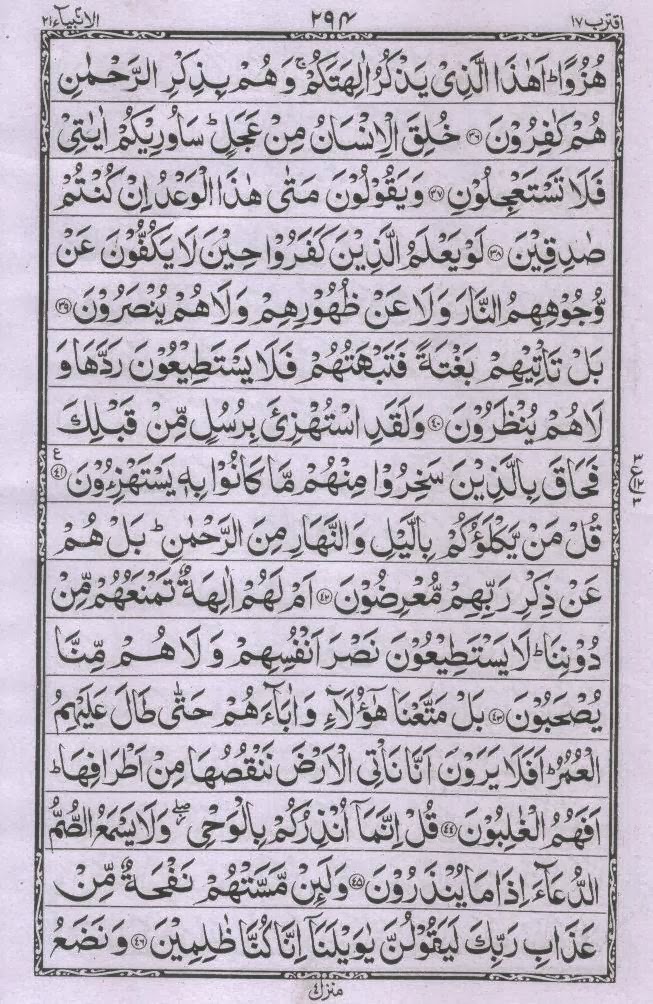 اقترب ١٧ ٢٩٤ الانبيآء ٢١
هُزُوًا ؕ اَهٰذَا الَّذِىْ يَذْكُرُ اٰلِهَتَكُمْ ۚ وَهُمْ بِذِكْرِ الرَّحْمٰنِ
هُمْ كٰفِرُوْنَ ﴿۳۶﴾ خُلِقَ الْاِنْسَانُ مِنْ عَجَلٍ ؕ سَاُورِيْكُمْ اٰيٰتِىْ
فَلَا تَسْتَعْجِلُوْنِ ﴿۳۷﴾ وَيَقُوْلُوْنَ مَتٰى هٰذَا الْوَعْدُ اِنْ كُنْتُمْ
صٰدِقِيْنَ ﴿۳۸﴾ لَوْ يَعْلَمُ الَّذِيْنَ كَفَرُوْا حِيْنَ لَا يَكُفُّوْنَ عَنْ
وُّجُوْهِهِمُ النَّارَ وَلَا عَنْ ظُهُوْرِهِمْ وَلَا هُمْ يُنْصَرُوْنَ ﴿۳۹﴾
بَلْ تَاْتِيْهِمْ بَغْتَةً فَتَبْهَتُهُمْ فَلَا يَسْتَطِيْعُوْنَ رَدَّهَا وَ
لَا هُمْ يُنْظَرُوْنَ ﴿۴۰﴾ وَلَقَدِ اسْتُهْزِئَ بِرُسُلٍ مِّنْ قَبْلِكَ
فَحَاقَ بِالَّذِيْنَ سَخِرُوْا مِنْهُمْ مَّا كَانُوْا بِهٖ يَسْتَهْزِءُوْنَ ﴿۴۱﴾ ع
قُلْ مَنْ يَّكْلَؤُكُمْ بِالَّيْلِ وَالنَّهَارِ مِنَ الرَّحْمٰنِ ؕ بَلْ هُمْ
عَنْ ذِكْرِ رَبِّهِمْ مُّعْرِضُوْنَ ﴿۴۲﴾ اَمْ لَهُمْ اٰلِهَةٌ تَمْنَعُهُمْ مِّنْ
دُوْنِنَا ؕ لَا يَسْتَطِيْعُوْنَ نَصْرَ اَنْفُسِهِمْ وَلَا هُمْ مِّنَّا
يُصْحَبُوْنَ ﴿۴۳﴾ بَلْ مَتَّعْنَا هٰٓؤُلَآءِ وَاٰبَآءَهُمْ حَتّٰى طَالَ عَلَيْهِمُ
الْعُمُرُ ؕ اَفَلَا يَرَوْنَ اَنَّا نَاْتِى الْاَرْضَ نَنْقُصُهَا مِنْ اَطْرَافِهَا ؕ
اَفَهُمُ الْغٰلِبُوْنَ ﴿۴۴﴾ قُلْ اِنَّمَاۤ اُنْذِرُكُمْ بِالْوَحْىِ ۖ وَلَا يَسْمَعُ الصُّمُّ
الدُّعَآءَ اِذَا مَا يُنْذَرُوْنَ ﴿۴۵﴾ وَلَئِنْ مَّسَّتْهُمْ نَفْحَةٌ مِّنْ
عَذَابِ رَبِّكَ لَيَقُوْلُنَّ يٰوَيْلَنَاۤ اِنَّا كُنَّا ظٰلِمِيْنَ ﴿۴۶﴾ وَنَضَعُ
منزل ٤